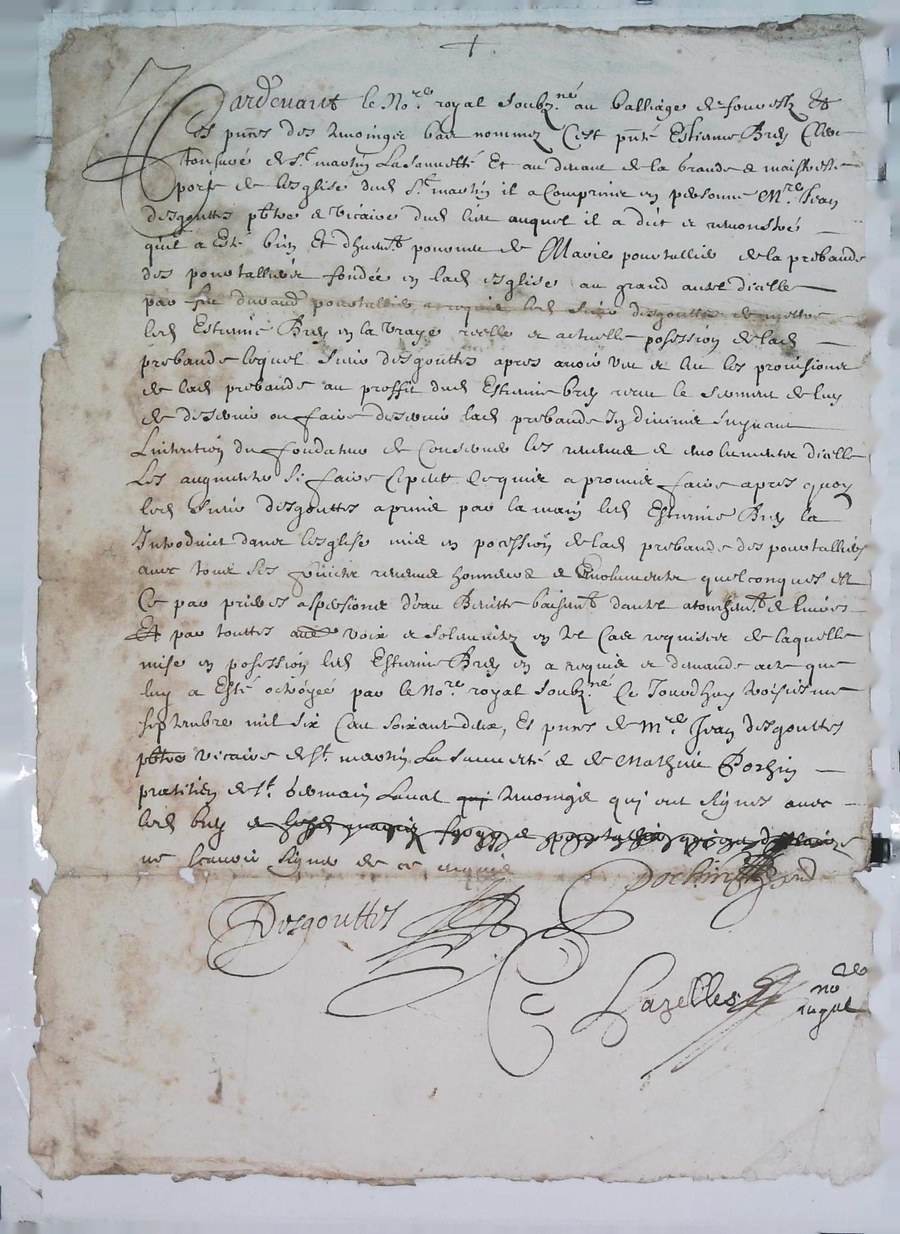 Pardevant le No.re royal soubz.né au balliage de fourestz Et
Es pntes des tesmoingz bas nommez C'est pnté Estienne Brey Clerc
tonsuré de S.t martin Lassauveté Et au devant de la grande
porte de lesglise dud S.t martin il a Comprins en personne M.re Jean
desgouttes pbtre & viccaire dud lieu auquel il a dict & remonstré
quil a esté bien Et dhuem.t pourveu de Marie pourtallier de la prebande
des pourtalliers fondée en lad esglise au grand autel dicelle
par pourtallier requis led sieur desgouttes de mettre
led Estienne Brey en la vraye reelle et actuelle posession de lad
prebande lequel sieur desgouttes apres avoir veu et leu les provisions
de lad prebande au proffit dud Estienne brey receu le serment de luy
de desservir ou faire desservir lad prebande suyvant
Lintention du fondateur & Conserver les revenus & emolumentz dicelle
Les augmenter Si faire Ce peult Ce quil a promis faire apres quoy
led sieur desgouttes a prins par la main led Estienne Brey la
Introduict dans lesglise mis en pocession de lad prebande des pourtalliers
avec tous ses fruictz revenus honneurs & Emolumentz quelconques et
Ce par prieres aspersions d'eau Benitte baisem.t dautel atouchem.t de livres
Et par touttes voix & solemnitez en tel Cas requises de laquelle
mise en posession led Estienne Brey en a requis et demandé acte que
luy a Esté octroyée par le No.re royal soubz.né Ce Jourdhuy troisiesme
septembre mil six Cent soixante deux, Es pntes de M.re Jean desgouttes
pbtre viccaire de St. martin La sauveté & de Mathieu Pochin
praticien de St. Germain Laval tesmoingz qui ont signés avec
led brey &
ne scavoir signer de ce enquis
Pochin
Desgouttes
Lazelles no.re
royal